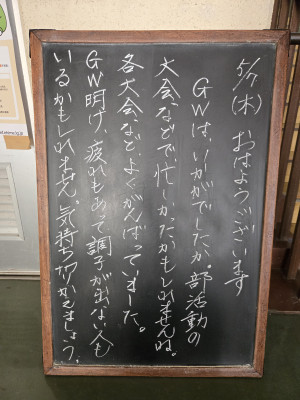 5/7(木) おはようございます
GWは、いかがでしたか。部活動の
大会、などで、忙しかったかもしれませんね。
各大会、など、よくがんばっていまーた。
GW明け、疲れもあって調子が出ない人も
いるかもしれません。気持ち切りかえましょう。